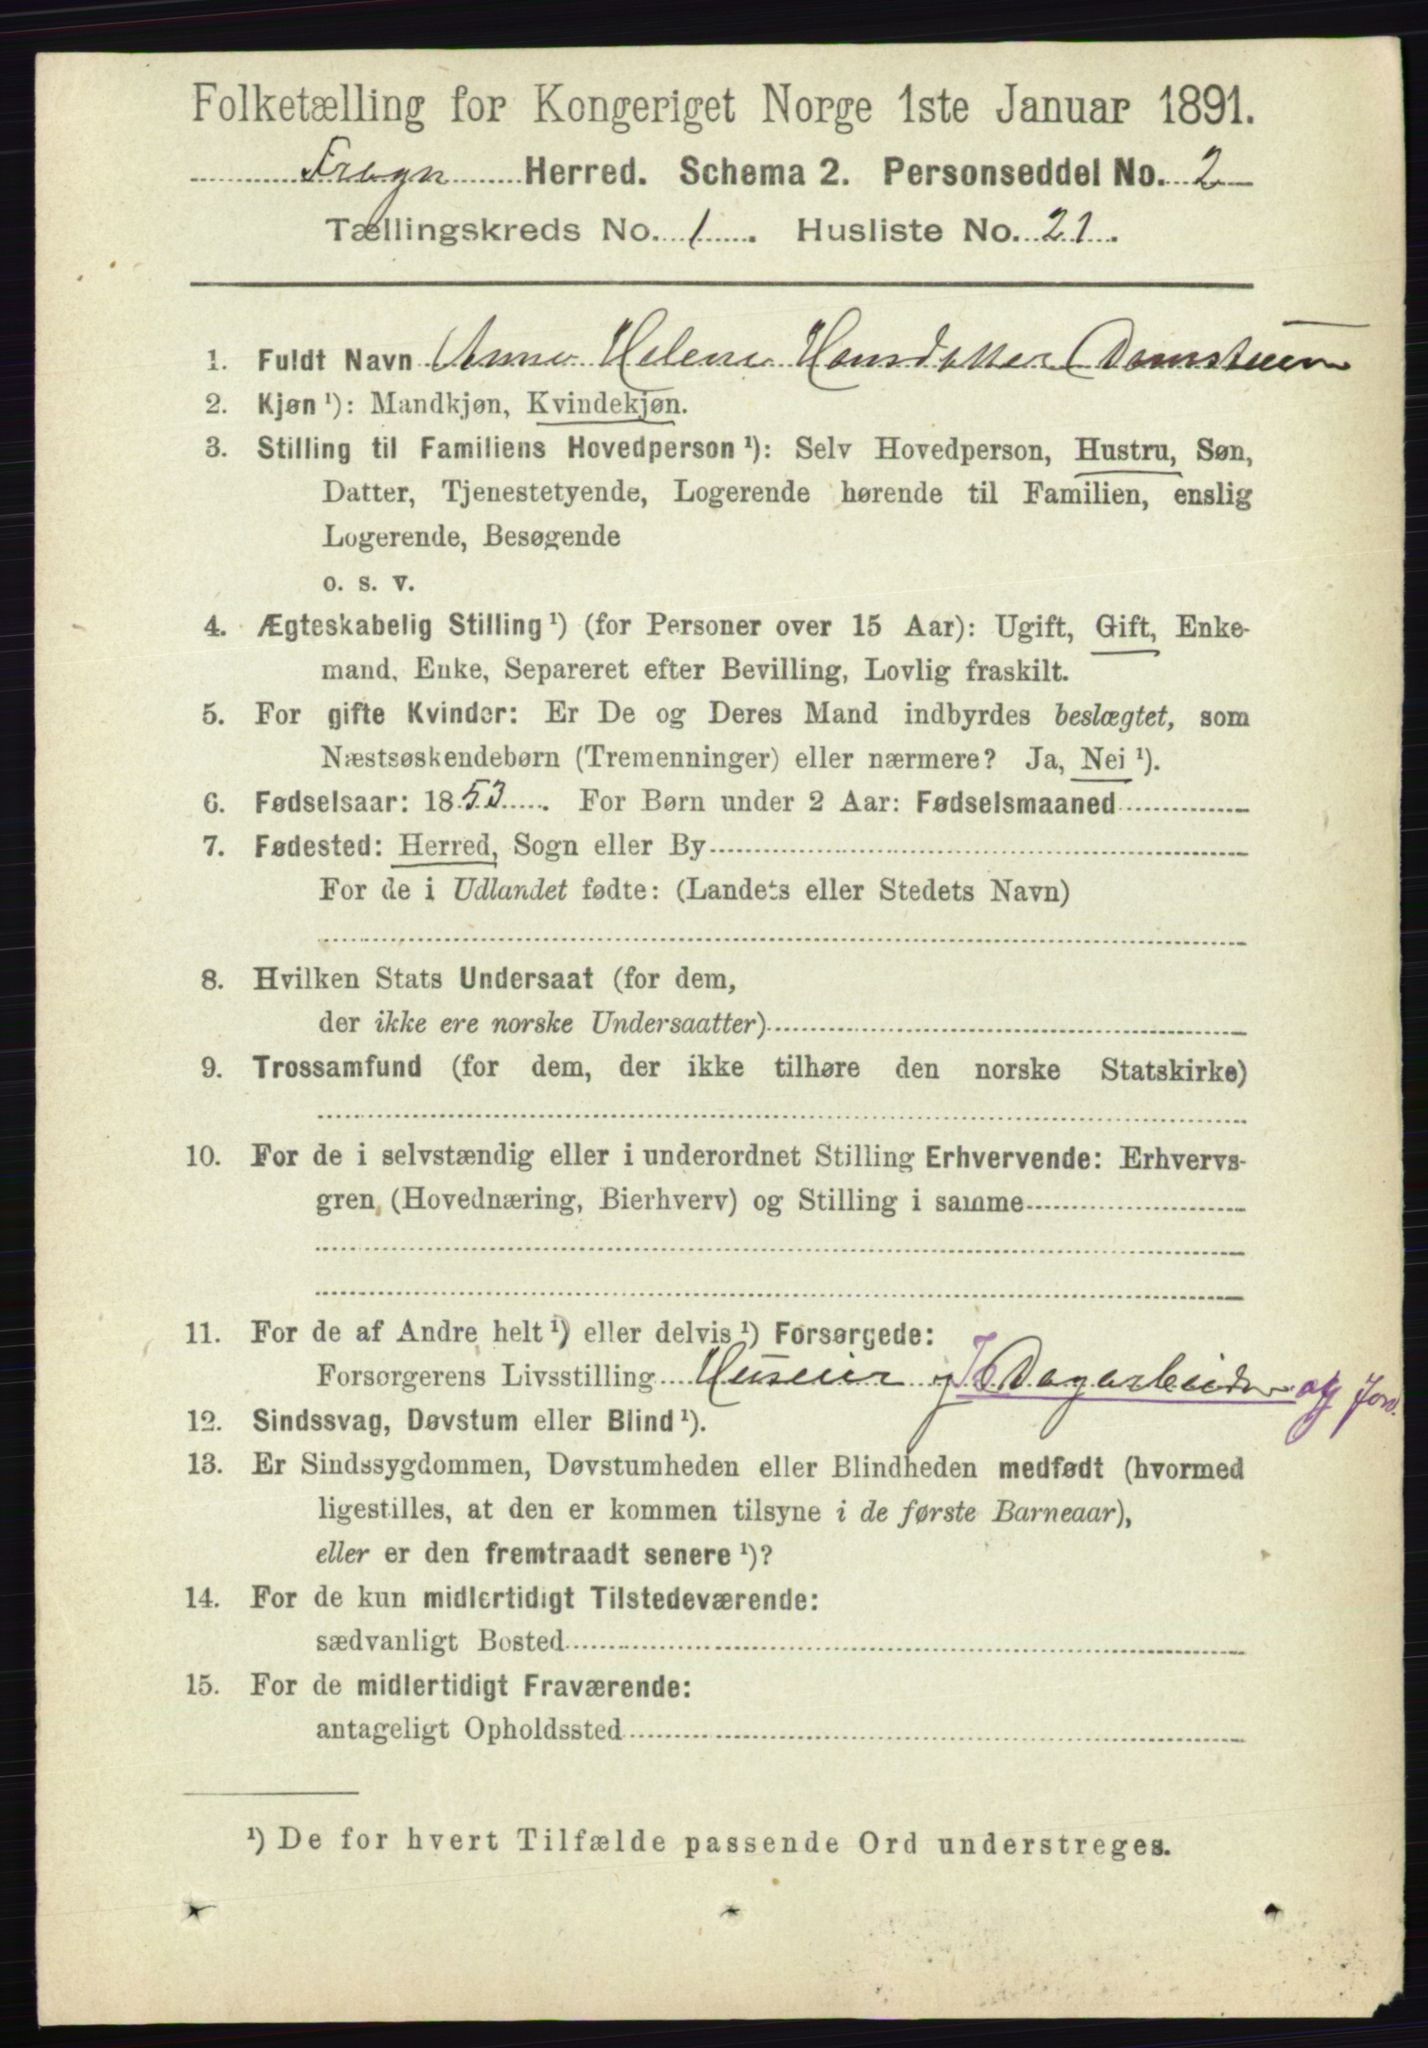 Folketælling for Kongeriget Norge 1ste Januar 1891.
Frogn Herred. Schema 2. Personseddel No. 2
Tællingskreds No. 1. Husliste No. 21.
1. Fuldt Navn Anne Helene Hansdatter Damstuen
2. Kjøn ¹): Mandkjøn, Kvindekjøn.
3. Stilling til Familiens Hovedperson ¹): Selv Hovedperson, Hustru, Søn,
Datter, Tjenestetyende, Logerende hørende til Familien, enslig
Logerende, Besøgende
o. s. v.
4. Ægteskabelig Stilling ¹) (for Personer over 15 Aar): Ugift, Gift, Enke-
mand, Enke, Separeret efter Bevilling, Lovlig fraskilt.
5. For gifte Kvinder: Er De og Deres Mand indbyrdes beslægtet, som
Næstsøskendebørn (Tremenninger) eller nærmere? Ja, Nei ¹).
6. Fødselsaar: 1853. For Børn under 2 Aar: Fødselsmaaned
7. Fødested: Herred, Sogn eller By
For de i Udlandet fødte: (Landets eller Stedets Navn)
8. Hvilken Stats Undersaat (for dem,
der ikke ere norske Undersaatter)
9. Trossamfund (for dem, der ikke tilhøre den norske Statskirke)
10. For de i selvstændig eller i underordnet Stilling Erhvervende: Erhvervs-
gren (Hovednæring, Bierhverv) og Stilling i samme
11. For de af Andre helt ¹) eller delvis ¹) Forsørgede:
Forsørgerens Livsstilling Huseier og Dagarbeider og Jord.
12. Sindssvag, Døvstum eller Blind ¹).
13. Er Sindssygdommen, Døvstumheden eller Blindheden medfødt (hvormed
ligestilles, at den er kommen tilsyne i de første Barneaar),
eller er den fremtraadt senere ¹)?
14. For de kun midlertidigt Tilstedeværende:
sædvanligt Bosted
15. For de midlertidigt Fraværende:
antageligt Opholdssted
¹) De for hvert Tilfælde passende Ord understreges.